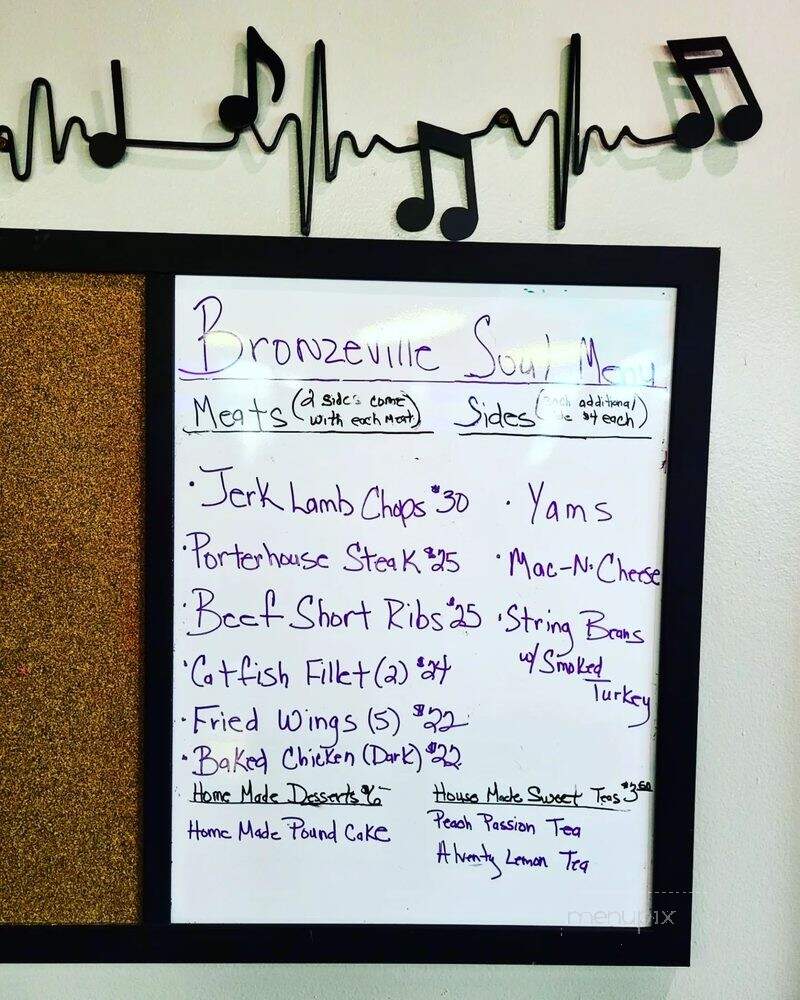 Bronzeville Soul Menu
Meats (2 side's come with each Meat)
Sides (each additional $4 each)
• Jerk Lamb Chops $30
• Porterhouse Steak $25
• Beef Short Ribs $25
• Catfish Fillet (2) $24
• Fried Wings (5) $22
• Baked Chicken (Dark) $22
• Yams
• Mac-N-Cheese
• String Beans
w/ Smoked
Turkey
Home Made Desserts $6
Home Made Pound Cake
House Made Sweet Teas $3.50
Peach Passion Tea
Lemon Tea
menupix